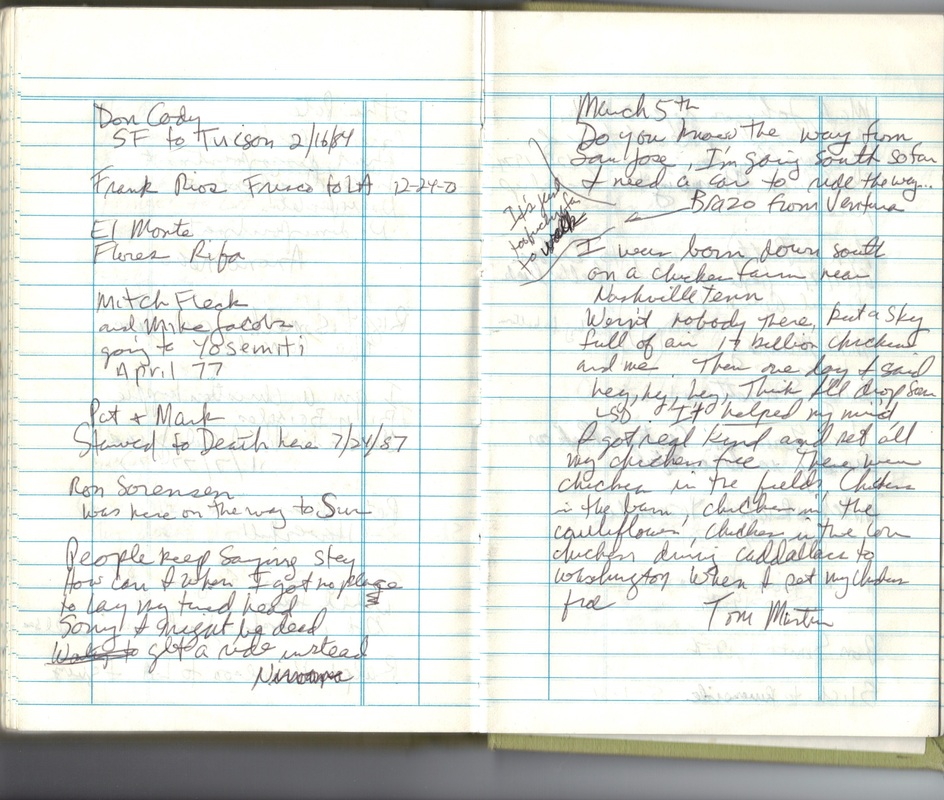 Don Cody
SF to Tucson 2/16/84
Frank Rios Frisco to LA 12-24-0
El Monte
Flores Rifa
Mitch Fleck
and Mike Jacobs
going to Yosemiti
April 77
Pat + Mark
Starved to Death here 7/24/87
Ron Sorensen
was here on the way to Sur
People keep saying stay
How can I when I got no place
to lay my tired head
Sorry I might be dead
get a ride instead
March 5th
Do you know the way from
San Jose, I'm going south so far
I need a car to ride the way...
It's kind
to walk
Brazo from Ventura
I was born down south
on a chicken farm near
Nashville Tenn
Wern't nobody there, but a sky
full of air 17 billion chickens
and me. Then one day I said
hey, hey, hey, Think I'll drop some
LSD. It helped my mind
I got real kind and set all
my chickens free. There were
chickens in the fields, Chickens
in the barn, chickens in the
cauliflower, chickens in the corn
chickens driving caddallacs to
Washington when I set my chickens
free
Tom Martin